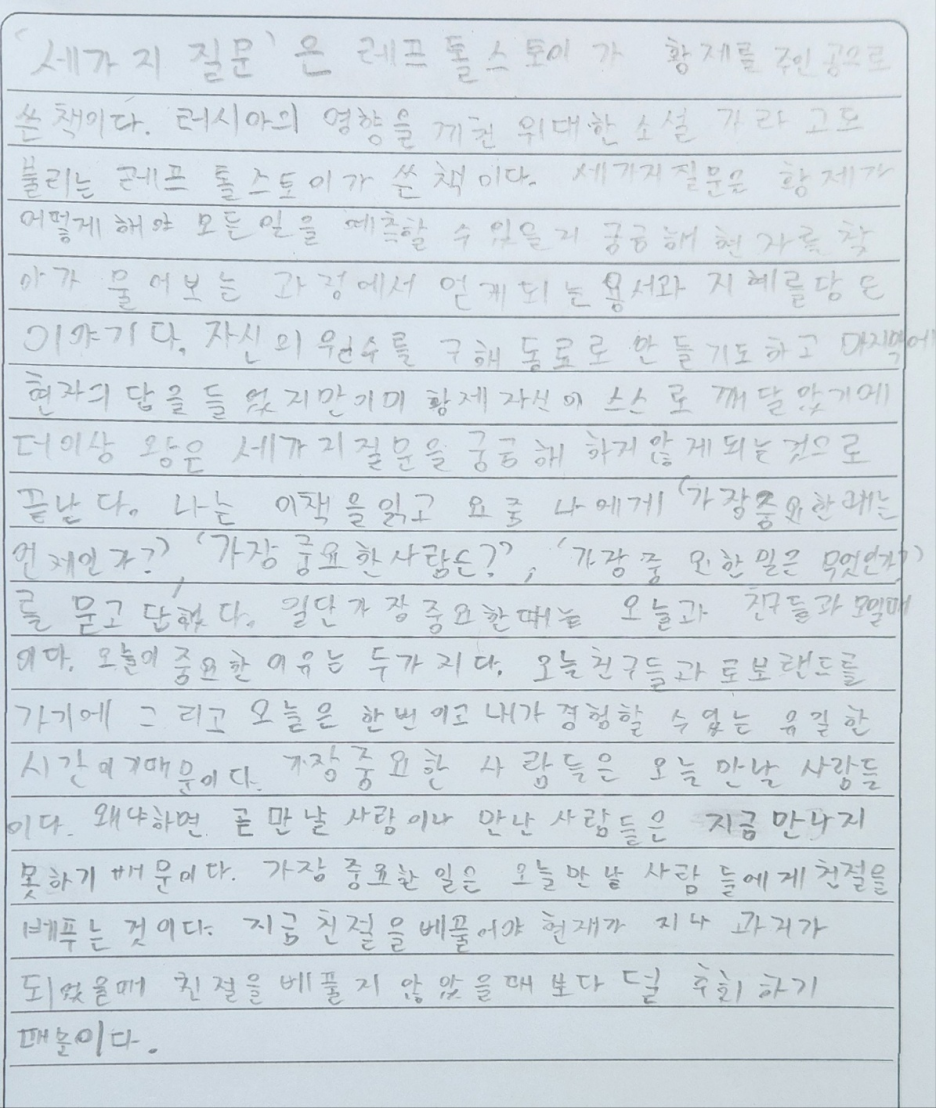 '세가지 질문'은 레프 톨스토이가 황제를 주인공으로
쓴 책이다. 러시아의 영향을 끼친 위대한 소설 가라고도
불리는 레프 톨스토이가 쓴 책이다. 세가지질문은 황제가
어떻게 해야 모든일을 예측할 수 있을지 궁금해 현자를 찾
아가 물어보는 과정에서 얻게되는 용서와 지혜를담은
이야기다. 자신의 원수를 구해 동료로 만들기도하고 마지막에
현자의 답을 들었지만이미 황제자신이 스스로 깨달았기에
더이상 왕은 세가지질문을 궁금해 하지않게되는 것으로
끝난다. 나는 이책을읽고 요즘 나에게 '가장중요한때는
언제인가?', '가장 중요한사람은?', '가장중요한일은 무엇인가?'
를 묻고 답했다. 일단가장중요한때는 오늘과 친구들과모일때
이다. 오늘이 중요한이유는 두가지다. 오늘친구들과 로보랜드를
가기에 그리고 오늘은 한번이고 내가경험할 수없는 유일한
시간이기때문이다. 가장중요한 사람들은 오늘만날 사람들
이다. 왜냐하면 곧만날사람이나 만난사람들은 지금만나지
못하기때문이다. 가장 중요한 일은 오늘만날 사람들에게친절을
베푸는 것이다. 지금친절을베풀어야 현재가 지나 과거가
되었을때 친절을베풀지 않았을때보다 덜 후회하기
때문이다.